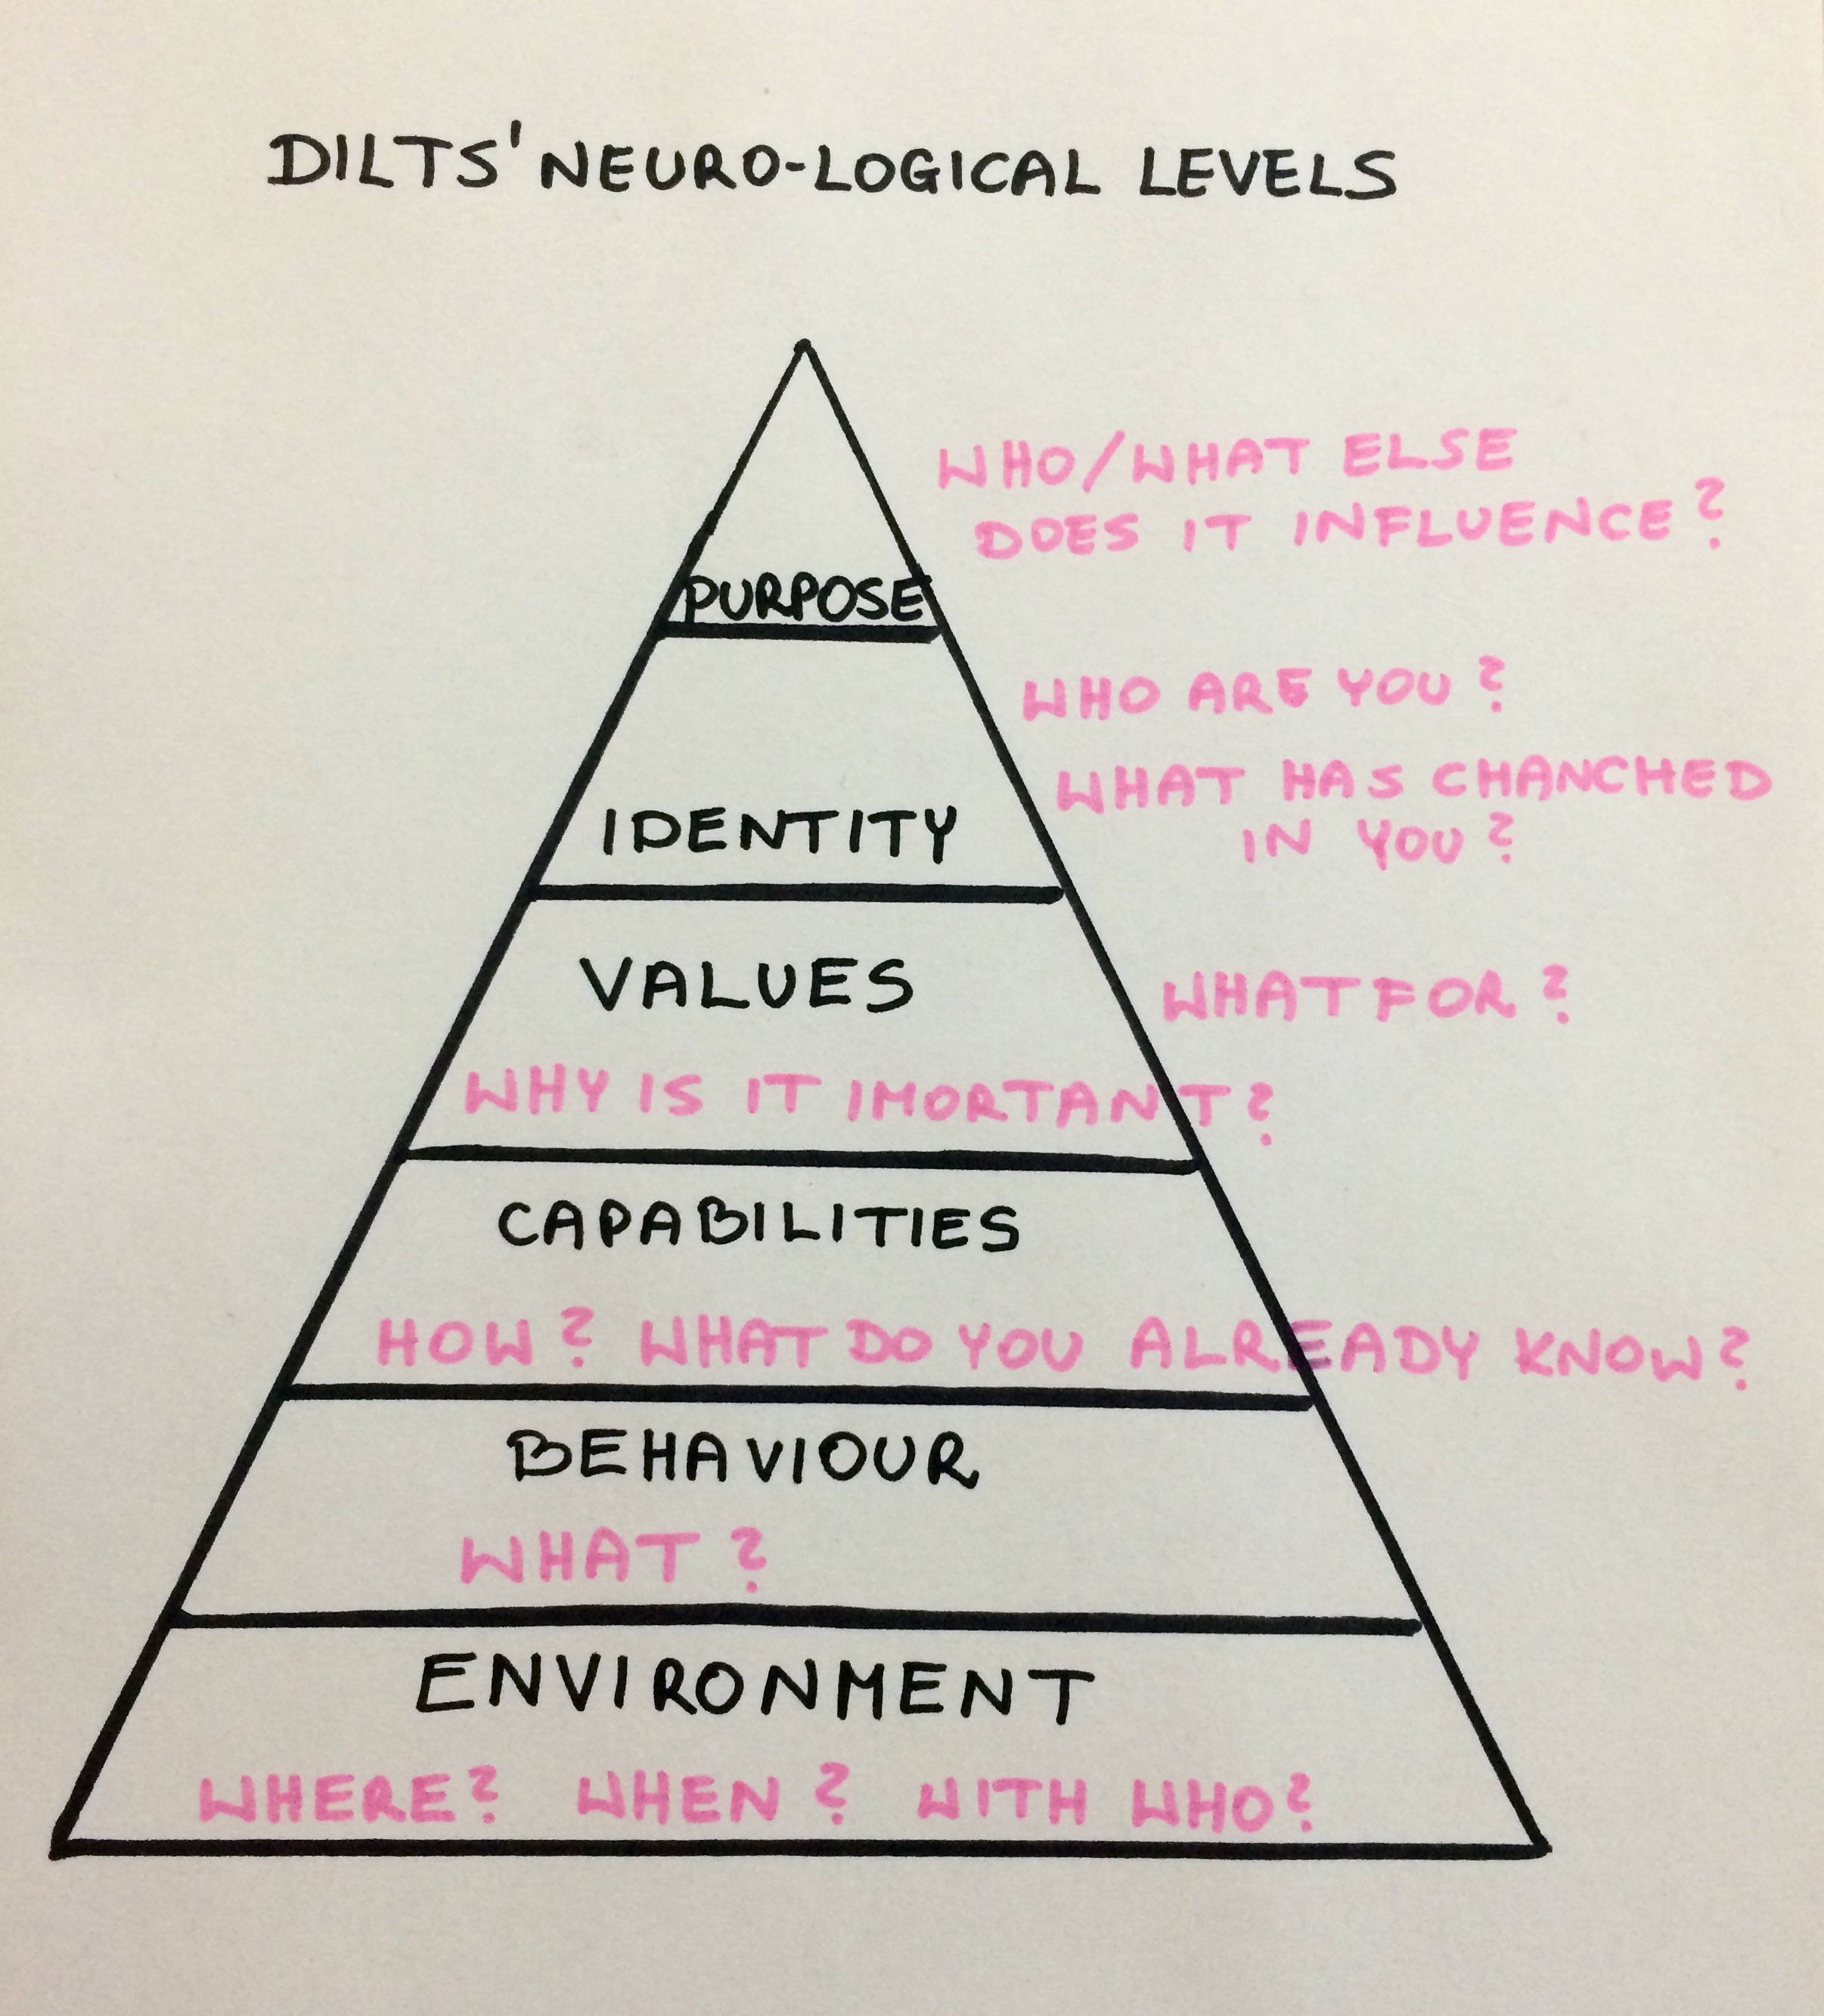 DILTS' NEURO-LOGICAL LEVELS
WHO/WHAT ELSE
DOES IT INFLUENCE?
PURPOSE
WHO ARE YOU?
WHAT HAS CHANCHED
IN YOU?
IDENTITY
VALUES
WHATFOR?
WHY IS IT IMORTANT?
CAPABILITIES
HOW? WHAT DO YOU ALREADY KNOW?
BEHAVIOUR
WHAT?
ENVIRONMENT
WHERE? WHEN? WITH WHO?